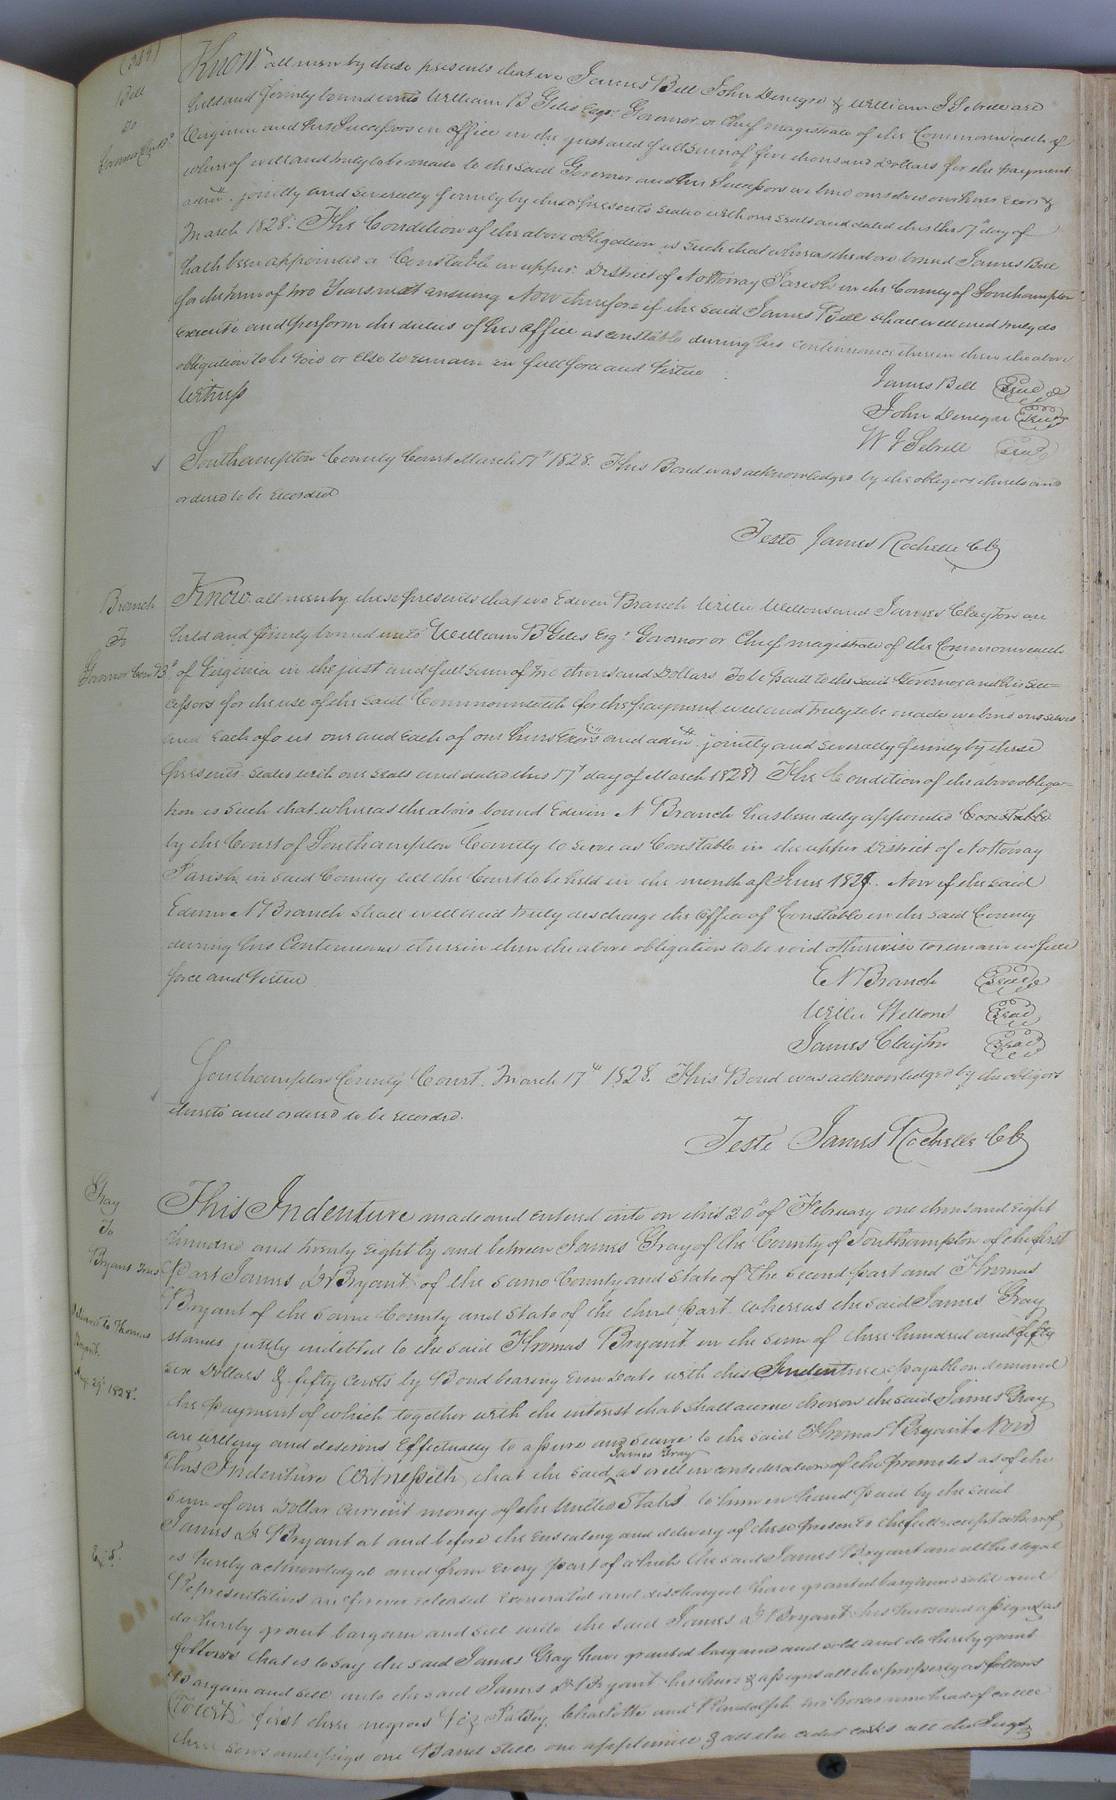 Bell
to
Know all men by these presents that we James Bell John Denegre & William J Sebrell are
held and firmly bound unto William B Giles Esqr. Governor or Chief magistrate of the Commonwealth of
Virginia and his Successors in office in the just and full sum of five thousand Dollars for the payment
whereof well and truly to be made to the said Governor and his Successors we bind ourselves our heirs exors &
admrs. jointly and severally firmly by these presents sealed with our seals and dated this the 17th day of
March 1828. The Condition of the above obligation is such that whereas the above bound James Bell
hath been appointed a Constable in upper District of Nottoway Parish in the County of Southampton
for the term of two Years next ensuing Now therefore if the said James Bell shall well and truly do
execute and perform the duties of his office as constable during his continuance therein then the above
obligation to be void or else to remain in full force and virtue
Witness
James Bell Seal
John Denegre Seal
W J Sebrell Seal
Southampton County Court March 17th 1828. This Bond was acknowledged by the obligors thereto and
ordered to be recorded
Teste James Rochelle CC
Branch
To
Governor Con. Bd.
Know all men by these presents that we Edwin Branch Willie Wellons and James Clayton are
held and firmly bound unto William B Giles Esqr. Governor or Chief magistrate of the Commonwealth
of Virginia in the just and full sum of two thousand Dollars To be paid to the said Governor and his Suc=
cessors for the use of the said Commonwealth for the payment well and truly to be made we bind ourselves
and each of us our and each of our heirs exors and admrs. jointly and severally firmly by these
presents sealed with our seals and dated this 17th day of March 1828 The Condition of the above obliga-
tion is such that whereas the above bound Edwin N Branch has been duly appointed Constable
by the Court of Southampton County to serve as Constable in the upper District of Nottoway
Parish in said County till the Court to be held in the month of June 1829. Now if the said
Edwin N Branch shall well and truly discharge the office of Constable in the said County
during his Continuance therein then the above obligation to be void otherwise to remain in full
force and virtue
E N Branch Seal
Willie Wellons Seal
James Clayton Seal
Southampton County Court March 17th 1828. This Bond was acknowledged by the obligors
thereto and ordered to be recorded.
Teste James Rochelle CC
Gray
To
Bryant
delivered to Thomas
Bryant.
29th 1828.
This Indenture made and entered into on this 20th of February one thousand eight
hundred and twenty eight by and between James Gray of the County of Southampton of the first
part James D Bryant of the same County and State of the second part and Thomas
Bryant of the same County and State of the third part whereas the said James Gray
stands justly indebted to the said Thomas Bryant in the sum of three hundred and fifty
six Dollars & fifty cents by Bond bearing even date with this Indenture payable on demand
the payment of which together with the interest that shall accrue thereon the said James Gray
are willing and desirous effectually to assure and secure to the said Thomas Bryant Now
James Gray
This Indenture Witnesseth that the said as well in consideration of the premises as of the
sum of one Dollar current money of the United States to him in hand paid by the said
James D Bryant at and before the ensealing and delivery of these presents the full receipt whereof
is hereby acknowledged and from every part of which the said James Bryant and all his legal
Representatives are forever released exonerated and discharged have granted bargained sold and
do hereby grant bargain and sell unto the said James D Bryant his heirs and assigns as
follows that is to say the said James Gray have granted bargained and sold and do hereby grant
bargain and sell unto the said James D Bryant his heirs & assigns all the property as follows
(Towit) first three negroes Viz Patsey, Charlotte and Randolph two horses nine head of cattle
three sows and pigs one Barrel still one apple mill & all the cider casks all the hogs